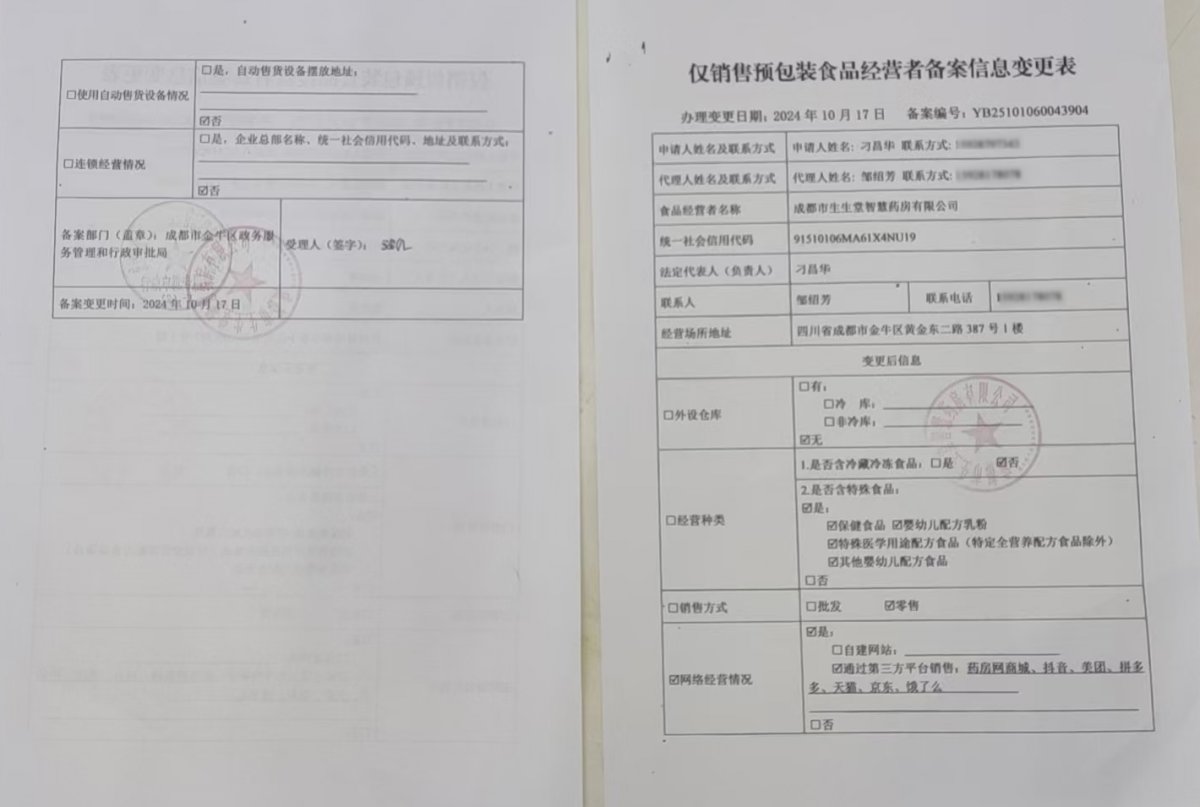 □使用自动售货设备情况
□是，自动售货设备摆放地址：
☑否
□连锁经营情况
□是，企业总部名称、统一社会信用代码、地址及联系方式：
☑否
备案部门（盖章）：成都市金牛区政务服
务管理和行政审批局
受理人（签字）：
备案变更时间：2024 年 10 月 17 日
仅销售预包装食品经营者备案信息变更表
办理变更日期：2024 年 10 月 17 日 备案编号：YB25101060043904
申请人姓名及联系方式 申请人姓名：刁昌华 联系方式：
代理人姓名及联系方式 代理人姓名：邹绍芳 联系方式：
食品经营者名称 成都市生生堂智慧药房有限公司
统一社会信用代码 91510106MA61X4NU19
法定代表人（负责人） 刁昌华
联系人 邹绍芳 联系电话
经营场所地址 四川省成都市金牛区黄金东二路 387 号 1 楼
变更后信息
□外设仓库
□有：
□冷 库：
□非冷库：
☑无
□经营种类
1.是否含冷藏冷冻食品：□是 ☑否
2.是否含特殊食品：
☑是：
☑保健食品 ☑婴幼儿配方乳粉
☑特殊医学用途配方食品（特定全营养配方食品除外）
☑其他婴幼儿配方食品
□否
□销售方式 □批发 ☑零售
☑网络经营情况
☑是：
□自建网站：
☑通过第三方平台销售：药房网商城、抖音、美团、拼多
多、天猫、京东、饿了么
□否